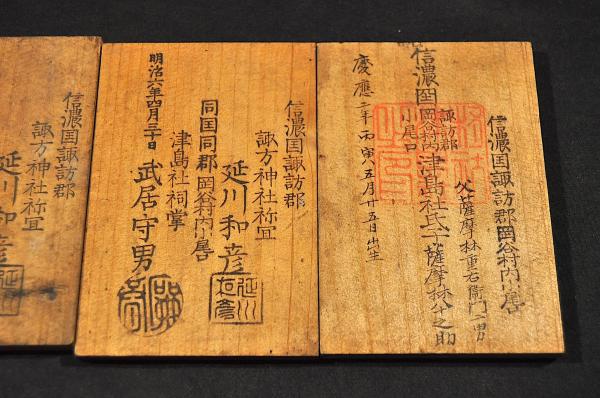 信濃国諏訪郡岡谷村内小尾口
父薩摩林重右衛門男
信濃国
諏訪郡
岡谷村内
小尾口
津島社氏子
薩摩林之助
慶應二年丙寅五月廿五日出生
信濃国諏訪郡
諏方神社祢宜
延川和彦
同国同郡岡谷村内小尾口
津島社祠掌
武居守男
明治六年四月三十日
信濃国諏訪郡
諏方神社祢宜
延川和彦